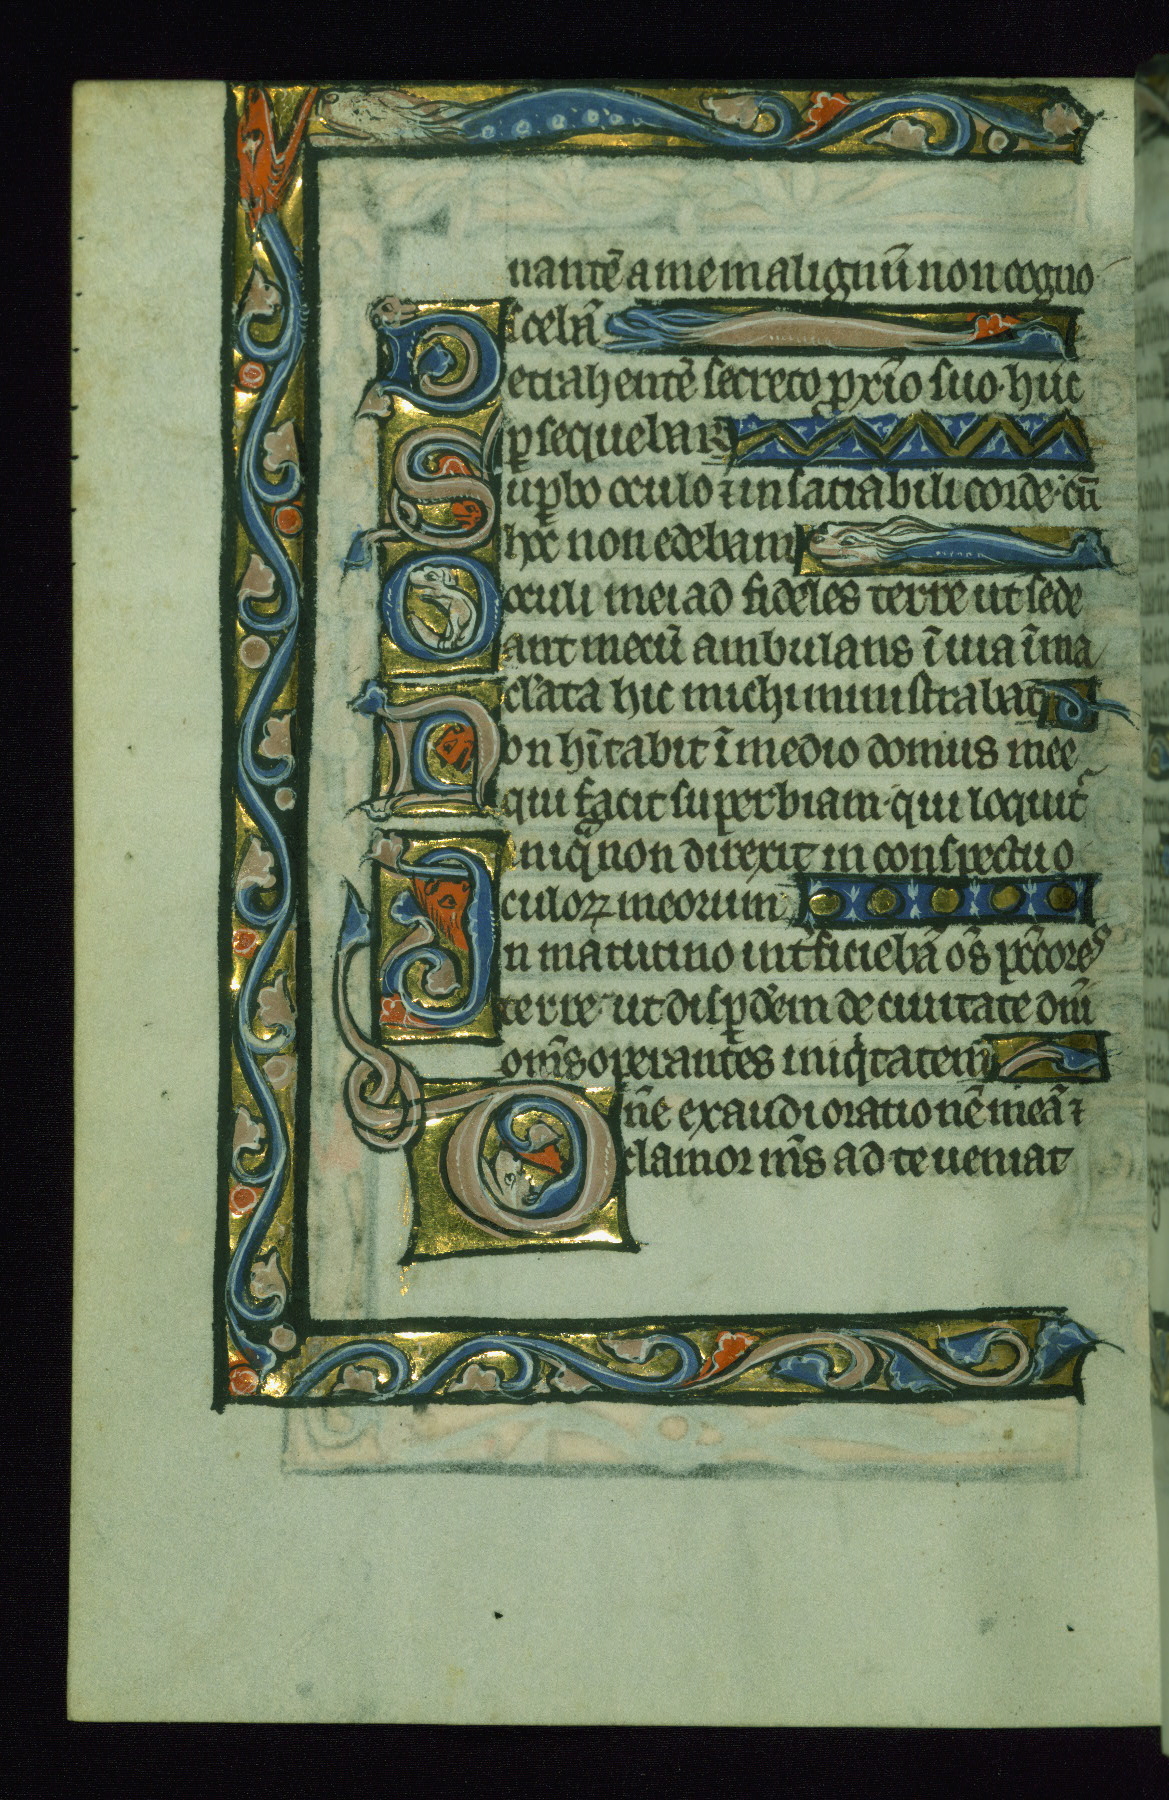 nantē a me malignū non cogno
scebā
Detrahentē secreto ꝓxīo suo· hūc
ꝑsequebar
Suꝑbo oculo ⁊ insatiabili corde· cū
hoc non edebam
Oculi mei ad fideles terre ut sede
ant mecū ambulans ī uia īma
clata hic michi ministrabat
Non hītabit ī medio domus mee
qui facit superbiam· qui loquit᷑
iniq̄ non direxit in conspectu o
culoꝝ meorum
In matutino int̄ficiebā oēs pc̄cores
terre· ut disꝑdēm de ciuitate dn̄i
om̄s operantes iniqͥtatem
Dn̄e exaudi orationē meā ⁊
clamor m̄s ad te ueniat